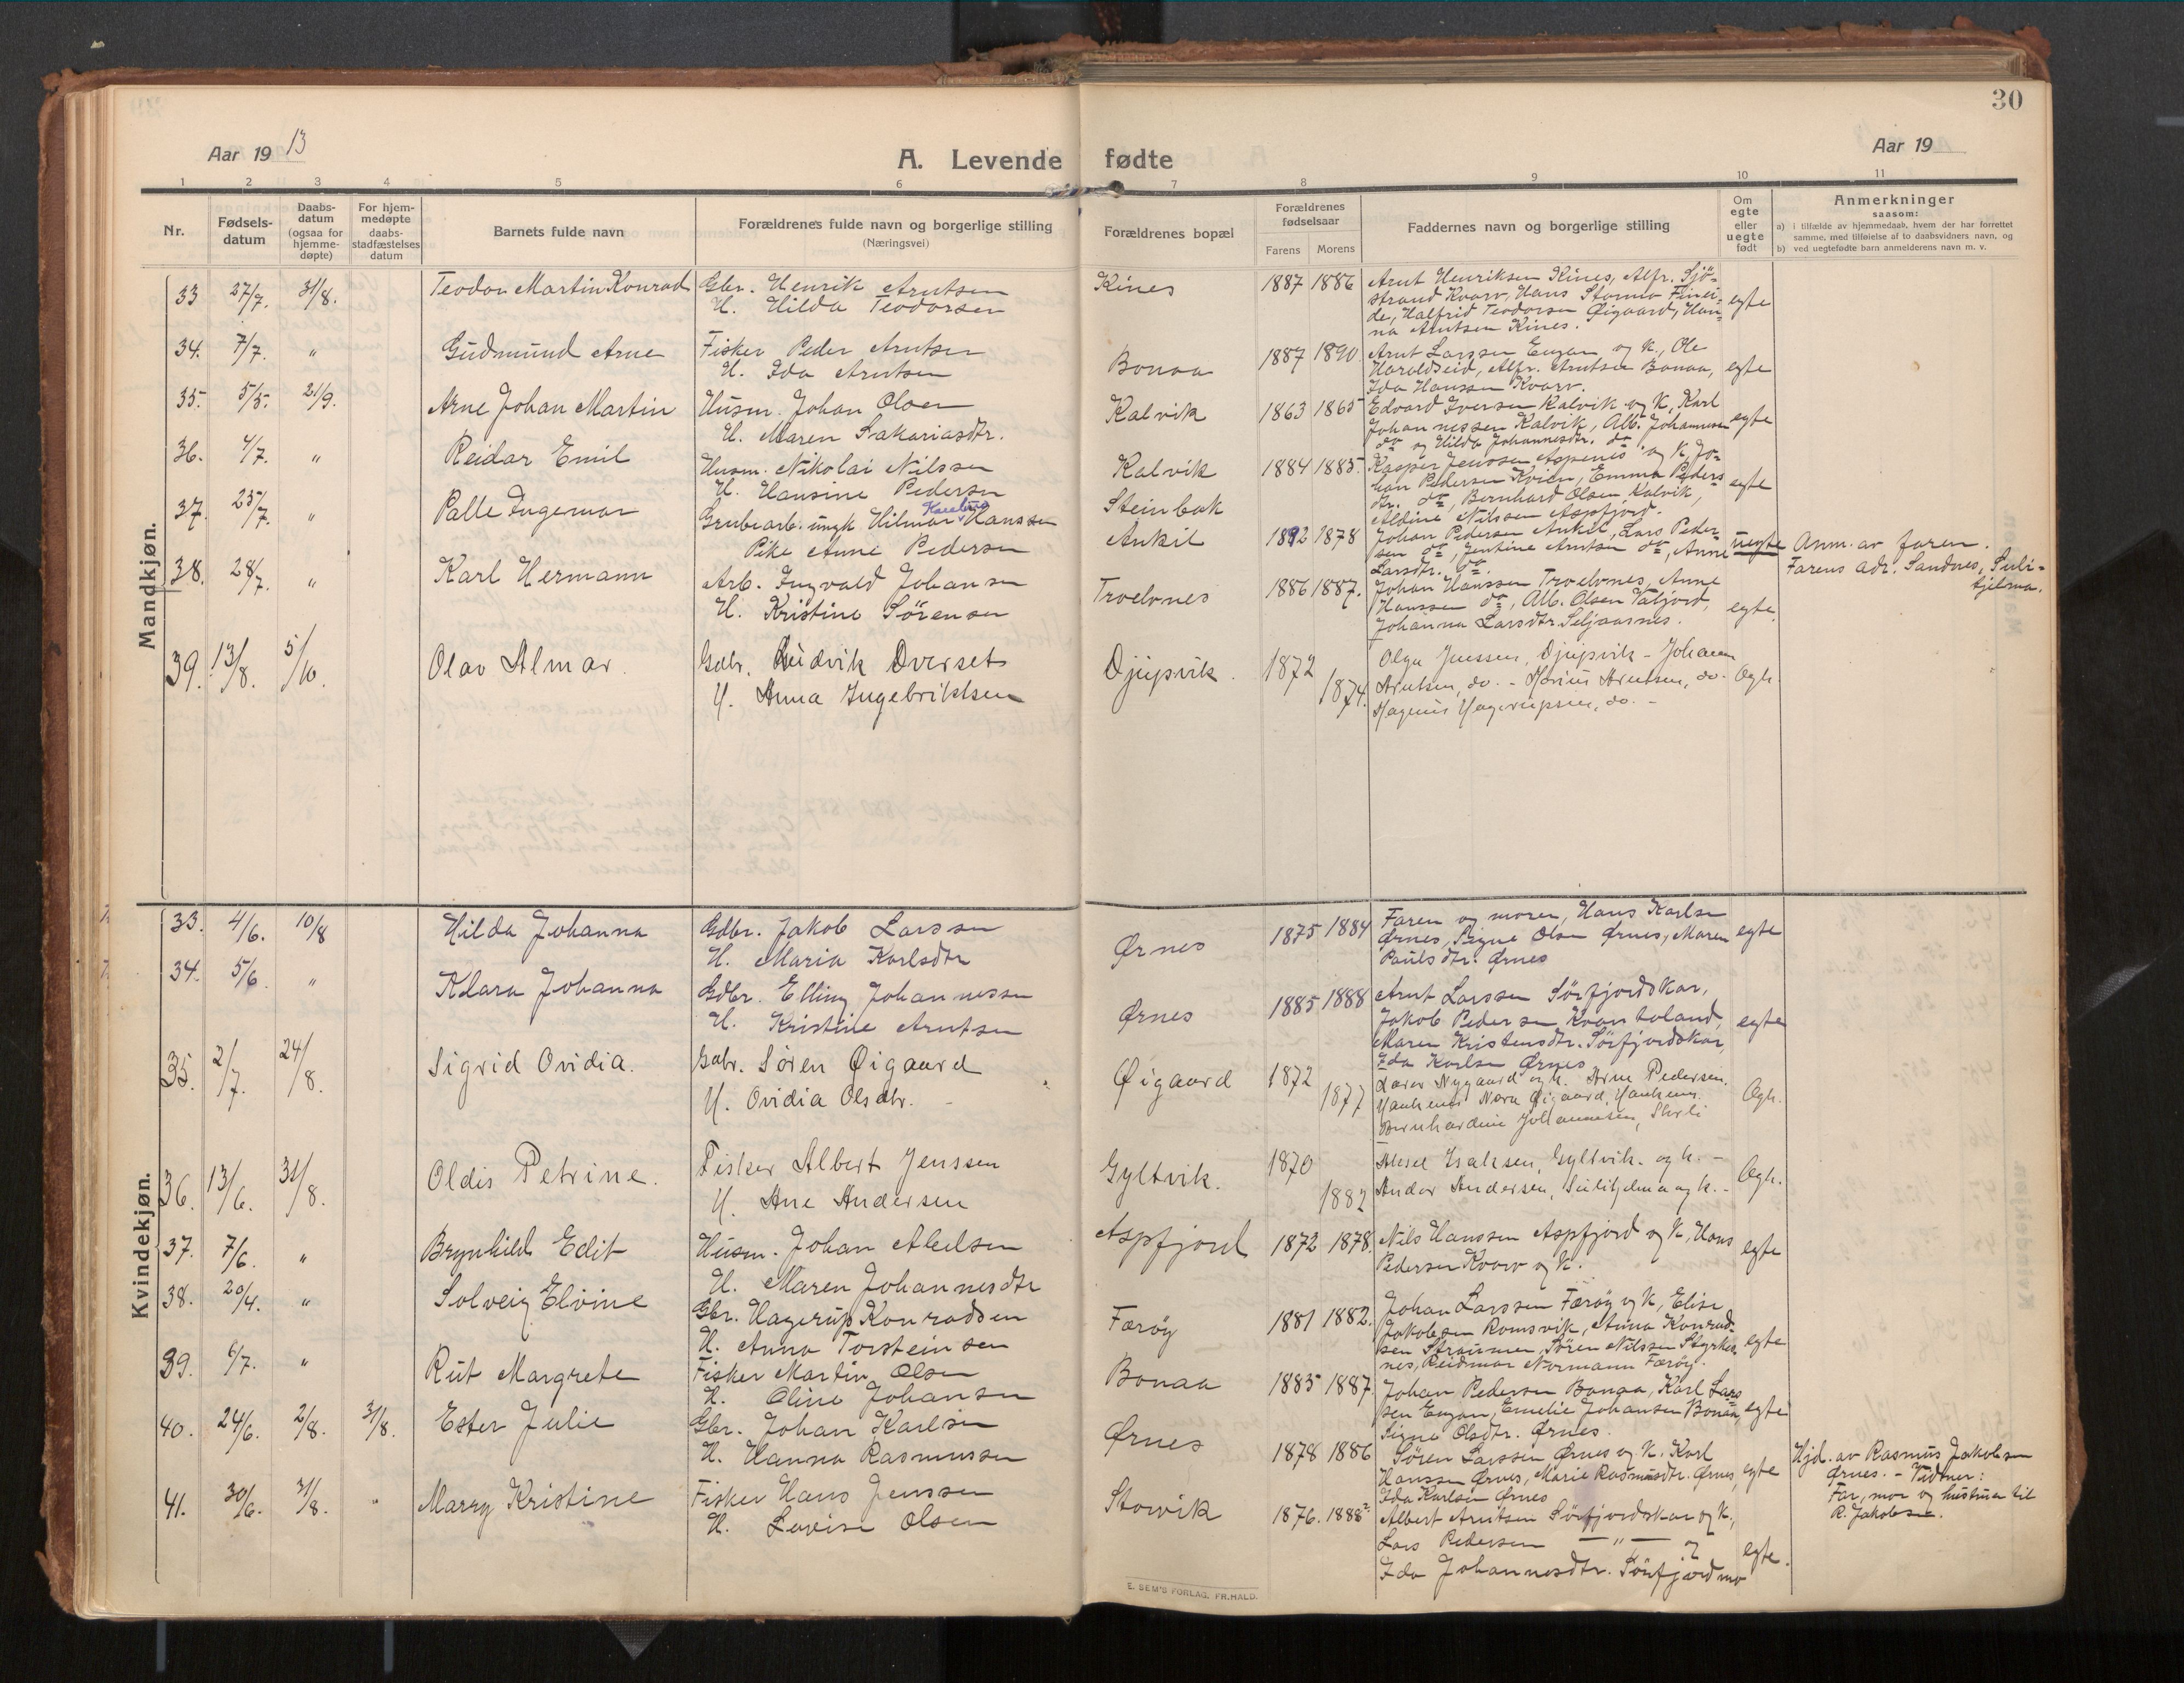 30
Aar 19 13
A. Levende fødte
Aar 19
1 2 3 4 5 6 7 8 9 10 11
Nr.
Fødsels-
datum
Daabs-
datum
(ogsaa for
hjemme-
døpte)
For hjem-
medøpte
daabs-
stadfæstelses
datum
Barnets fulde navn
Forældrenes fulde navn og borgerlige stilling
(Næringsvei)
Forældrenes bopæl
Forældrenes
fødselsaar
Farens Morens
Faddernes navn og borgerlige stilling
Om
egte
eller
uegte
født
Anmerkninger
saasom:
a) i tilfælde av hjemmedaab, hvem der har forrettet
samme, med tilføielse af to daabsvidners navn, og
b) ved uegtefødte barn anmelderens navn m. v.
Mandkjøn.
33 27/7. 31/8. Teodor Martin Konrad
Gbr. Henrik Arntsen
H. Hilda Teodorsen
Kines 1887 1886
Arnt Henriksen Kines, Alfr. Sjö-
strand Kvarv, Hans Stormo Finei-
de, Halfrid Teodorsen Øigaard, Han-
na Arntsen Kines.
egte
34. 7/7. " Gudmund Arne
Fisker Peder Arntsen
H. Ida Arntsen
Bonaa 1887 1890.
Arnt Larssen Engan og K., Ole
Haroldseid, Alfr. Arntsen Bonaa,
Ida Hanssen Kvarv.
egte
35. 5/5. 21/9. Arne Johan Martin
Husm. Johan Olsen
H. Maren Sakariasdtr.
Kalvik 1863 1865
Edvard Iversen Kalvik og K, Karl
Johannessen Kalvik, Alb. Johannesen
do og Hilda Johannesdtr. do
egte
36. 4/7. " Reidar Emil
Husm. Nikolai Nilssen
H. Hansine Pedersen
Kalvik 1884 1885.
Kasper Jenssen Aspenes og K, Jo-
han Pedersen Kvien, Emma Peders
dtr. do, Bernhard Olsen Kalvik,
Aldine Nilssen Aspfjord.
egte
37. 25/7. " Palle Ingemar
Grubearb. ungk Hilmar Hanssen
Pike Anne Pedersen
Steinbak
Ankil 1892 1878
Johan Pedersen Ankil, Lars Peder-
sen do, Jentine Arntsen do, Anne
Larsdtr. do.
uegte
Anm. av faren.
Farens adr. Sandnes, Suli-
tjelma.
38. 28/7. " Karl Hermann
Arb. Ingvald Johansen
H. Kristine Sörensen
Troelvnes 1886 1887.
Johan Hanssen Troelvnes, Anne
Hanssen do, Alb. Olsen Valjord,
Johanna Larsdtr. Seljaasnes.
egte.
39. 13/8. 5/10. Olav Almar
Gdbr. Ludvik Dverset
H. Anna Ingebriktsen
Djupvik. 1872 1874.
Olga Jenssen, Djupvik - Johan
Arntsen, do. - Marius Arntsen, do.
Magnus Hagerupsen, do. -
Egte.
Kvindekjøn.
33. 4/6. 10/8 Hilda Johanna
Gdbr. Jakob Larssen
H. Maria Karlsdtr
Ørnes 1875 1884
Faren og moren, Hans Karlsen
Ørnes, Signe Olsen Ørnes, Maren
Paulsdtr. Ørnes
egte
34. 5/6. " Klara Johanna
Gdbr. Elling Johannessen
H. Kristine Arntsen
Ørnes 1885 1888
Arnt Larssen Sörfjordskar,
Jakob Pedersen Kvantoland,
Maren Kristensdtr. Sörfjordskar,
Ida Karlsen Ørnes
egte
35. 2/7. 24/8. Sigrid Ovidia.
Gdbr. Sören Øigaard
H. Ovidia Olsdtr. -
Øigaard 1872 1877
Nygaard og h. Arne Pedersen.
Nora Øigaard,
Bernhardine Johannessen,
Egte.
36. 13/6. 31/8. Oldis Petrine.
Fisker Albert Jenssen
H. Ane Andersen
Gyltvik. 1870 1882
Aksel Isaksen, Gyltvik. og h. -
Andor Andersen, Sulitjelma og h. -
Egte.
37. 7/6. " Brynhild Edit
Husm. Johan Abelsen
H. Maren Johannesdtr
Aspfjord 1872 1878.
Nils Hanssen Aspfjord og K, Hans
Pedersen Kvarv og K.
egte
38. 20/4. " Solveig Elvine
Gbr. Hagerup Konradsen
H. Anna Torsteinsen
Færöy 1881 1882.
Johan Larssen Færöy og K, Elise
Jakobsen Romsvik, Anna Konrad-
sen Straumen, Sören Nilssen Styrkes-
nes, Reidmar Normann Færöy.
egte
39. 6/7. " Rut Margrete
Fisker Martin Olsen
H. Oline Johansen
Bonaa 1885 1887.
Johan Pedersen Bonaa, Karl Lars
sen Engan, Emelie Johansen Bonaa,
Signe Olsdtr. Ørnes.
egte
40. 24/6. 2/8. 31/8. Ester Julie
Gbr. Johan Karlsen
H. Hanna Rasmussen
Ørnes 1878 1886
Sören Larssen Ørnes og K. Karl
Hanssen Ørnes, Marie Rasmusdtr. Ørnes,
Ida Karlsen Ørnes
egte
Hjd. av Rasmus Jakobsen
Ørnes. - Vidner:
Far, mor og hustruen til
R. Jakobsen.
41. 30/6. 31/8. " Marry Kristine
Fisker Hans Jenssen
H. Lovise Olsen
Storvik 1876. 1888
Albert Arntsen Sörfjordskar og K.,
Lars Pedersen — " — og
Ida Johannesdtr. Sörfjordmo
egte.
E. SEM'S FORLAG. FR.HALD.